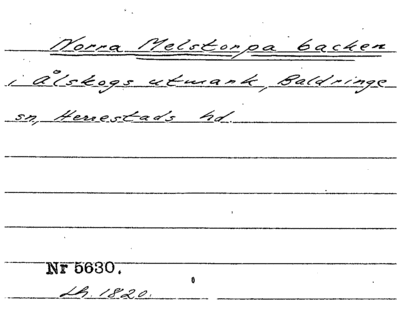 Norra Melstorpa backen
i Ålskogs utmark, Baldringe
sn, Herrestads hd.
Nr 5630.
Lh. 1820.